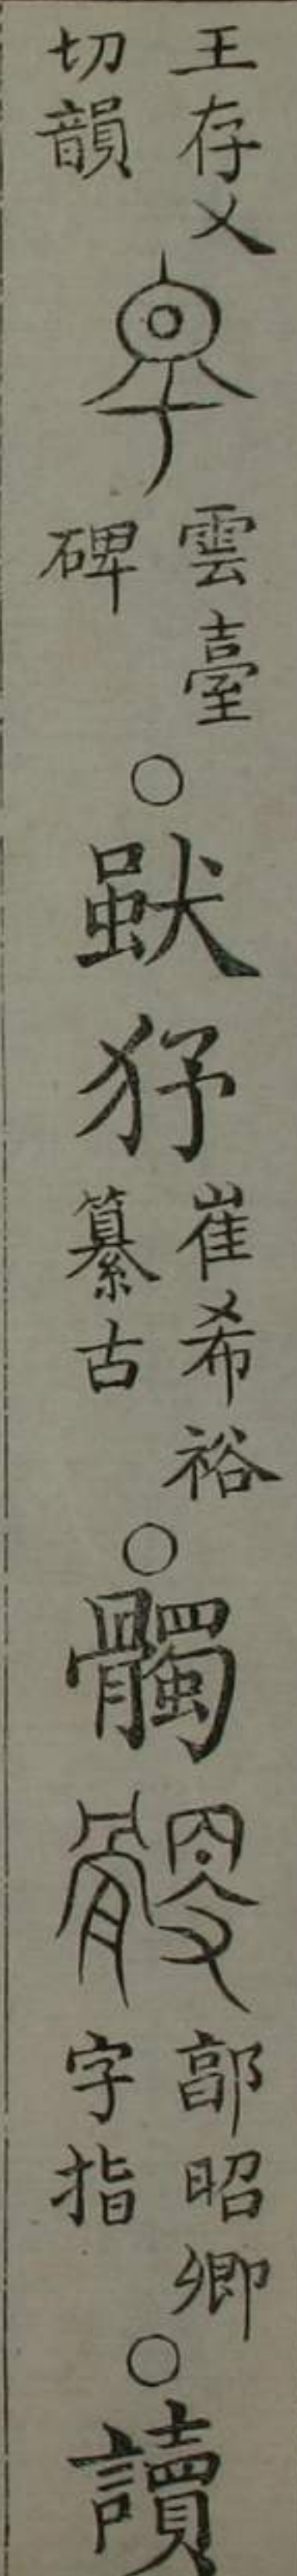 王存乂切韻 雲臺碑○ 崔希裕纂古○髑 郭昭卿字指○讀